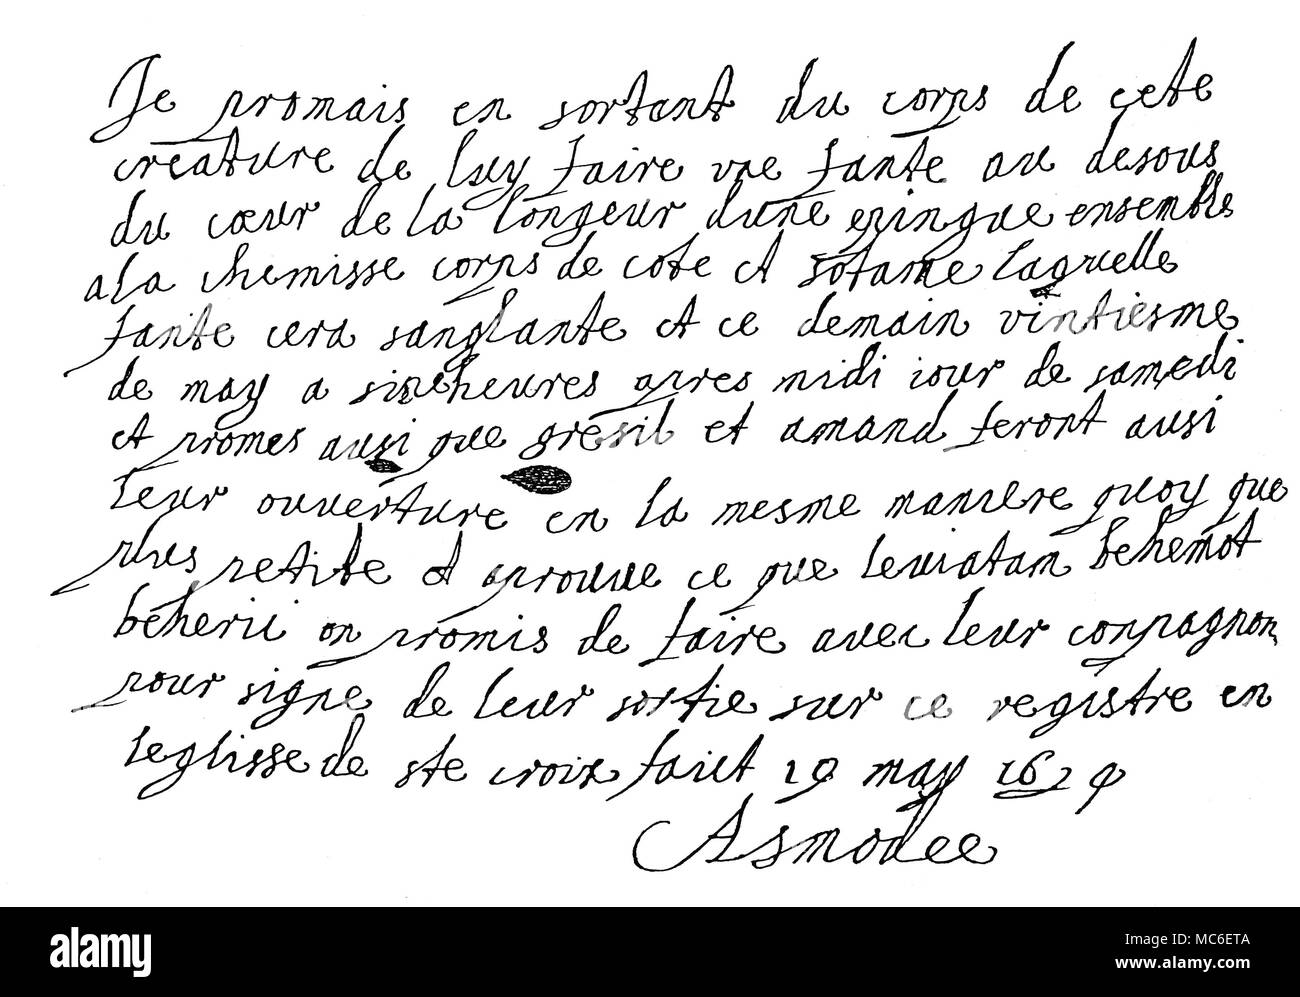 Je promais en sortant du corps de cete
creature de luy faire vne fante au desous
du cœur de la longeur dune epingue ensemble
a la chemisse corps de cote et sotane laquelle
fante cera sanglante et ce demain vintiesme
de may a sincheures apres midi iour de samedi
et promes ausi que gresil et amand feront ausi
leur ouverture en la mesme maniere quoy que
plus petite et aprouve ce que leviatam behemot
beherii on promis de faire avec leur compagnon
pour signe de leur sortie sur ce registre en
leglisse de ste croix faict 19 may 1629
Asmodee
alamy
Image ID: MC6ETA
www.alamy.com